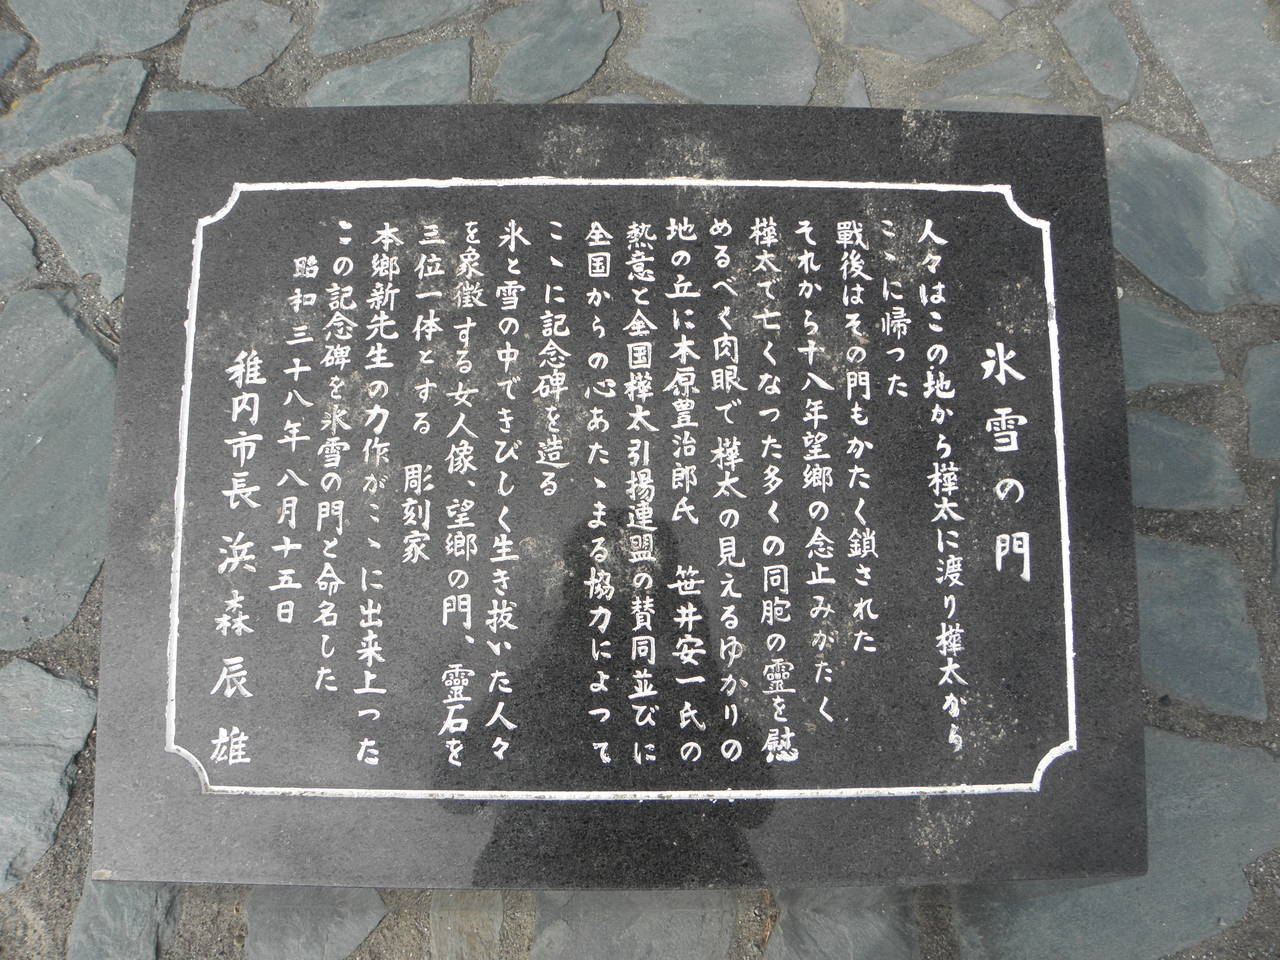 氷雪の門
人々はこの地から樺太に渡り樺太から
こゝに帰った
戰後はその門もかたく鎖された
それから十八年望郷の念止みがたく
樺太で亡くなった多くの同胞の靈を慰
めるべく肉眼で樺太の見えるゆかりの
地の丘に本原豊治郎氏 笹井安一氏の
熱意と全国樺太引揚連盟の賛同並びに
全国からの心あたゝまる協力によって
こゝに記念碑を造る
氷と雪の中できびしく生き抜いた人々
を象徴する女人像、望郷の門、靈石を
三位一体とする 彫刻家
本郷新先生の力作がこゝに出来上った
この記念碑を氷雪の門と命名した
昭和三十八年八月十五日
稚内市長 浜森辰雄